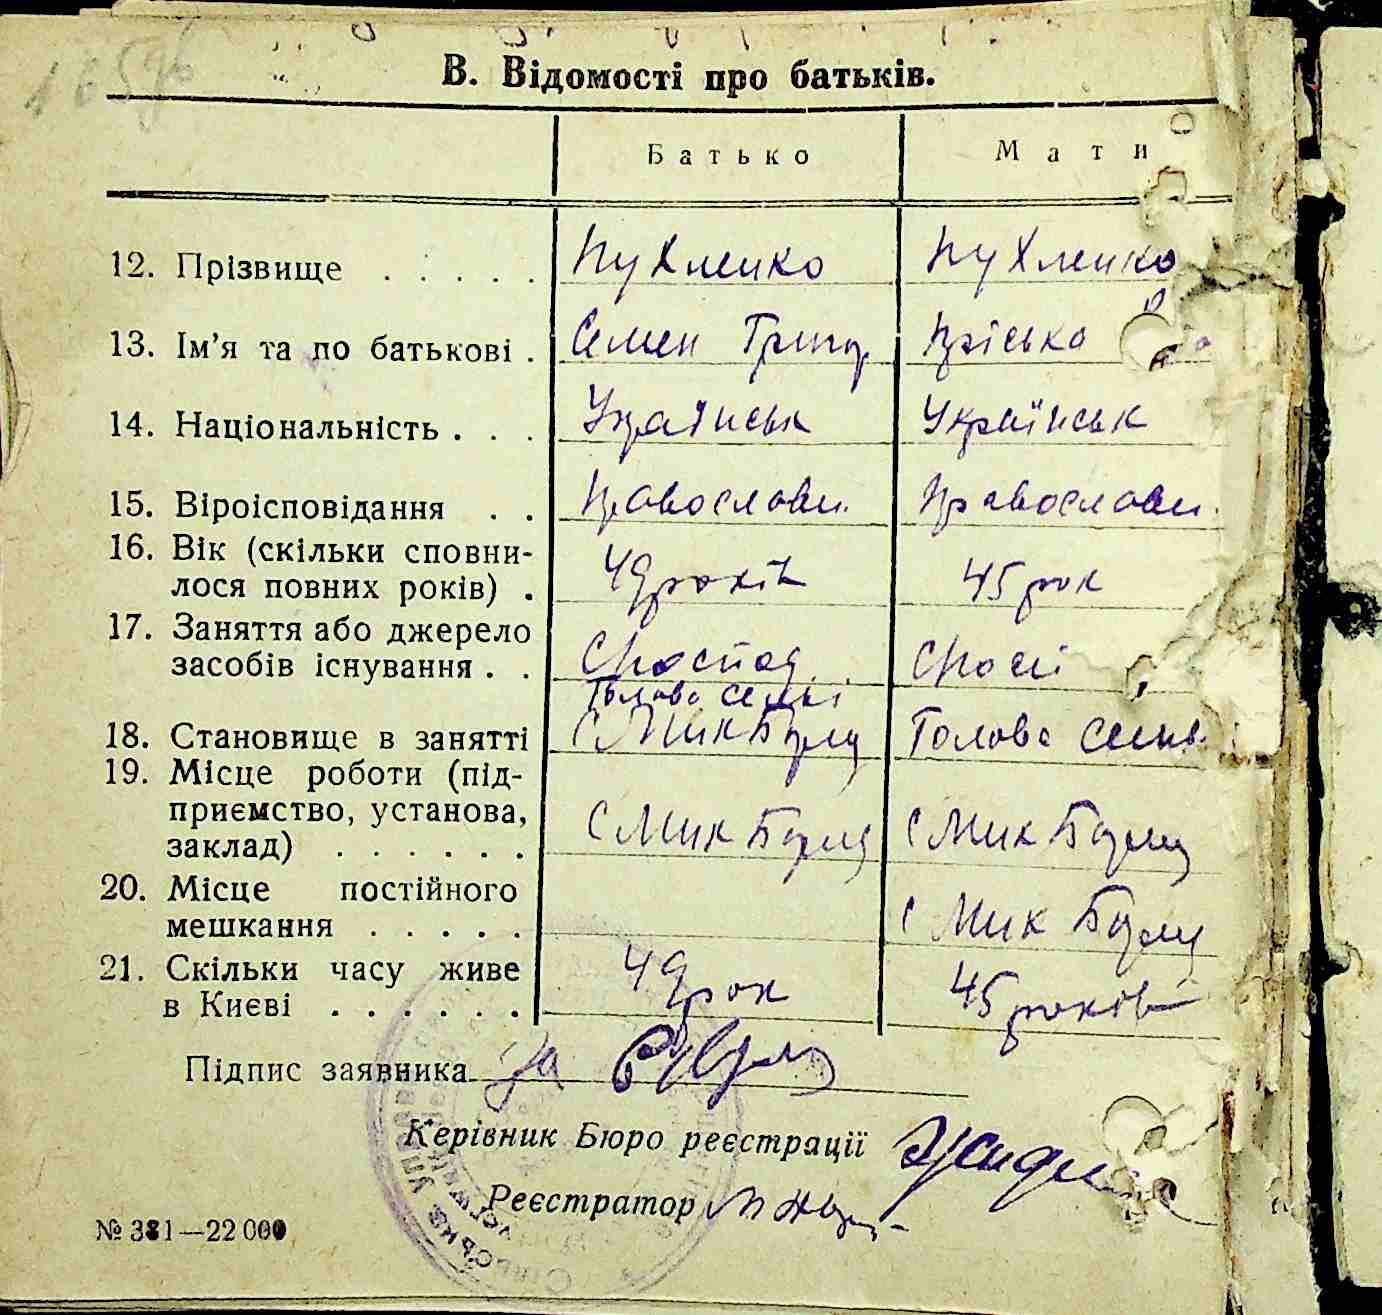 В. Відомості про батьків.
Батько Мати
12. Прізвище . . . . . Пухленко Пухленко
13. Ім’я та по батькові . Семен Григор Пріська
14. Національність . . . Українськ Українськ
15. Віроісповідання . . Православн. Православн.
16. Вік (скільки сповни-
лося повних років) . 49 років 45 рок
17. Заняття або джерело
засобів існування . . С Господ
Голова семьі
18. Становище в занятті С Мик Бурлу Голова семьі
19. Місце роботи (під-
приємство, установа,
заклад) . . . . . . С Мик Бурлу С Мик Бурлу
20. Місце постійного
мешкання . . . . . С Мик Бурлу
21. Скільки часу живе
в Києві . . . . . . 49 рок 45 років
Підпис заявника за
Керівник Бюро реєстрації
Реєстратор
№ 381—22 000